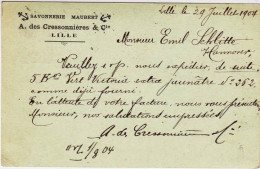 SAVONNERIE MAUBERT
A. des Cressonnières & Cie
LILLE
Lille le 29 Juillet 1904
Monsieur Emil Schlotte
Hannover
Veuillez s.v.p. nous expédier de suite
5 Bo Vert Victoria extra jaunâtre No 362
comme déjà fourni
En l'attente de votre facture, nous vous présentons
Monsieur, nos salutations empressées
A. des Cressonnières & Cie
1/8 04